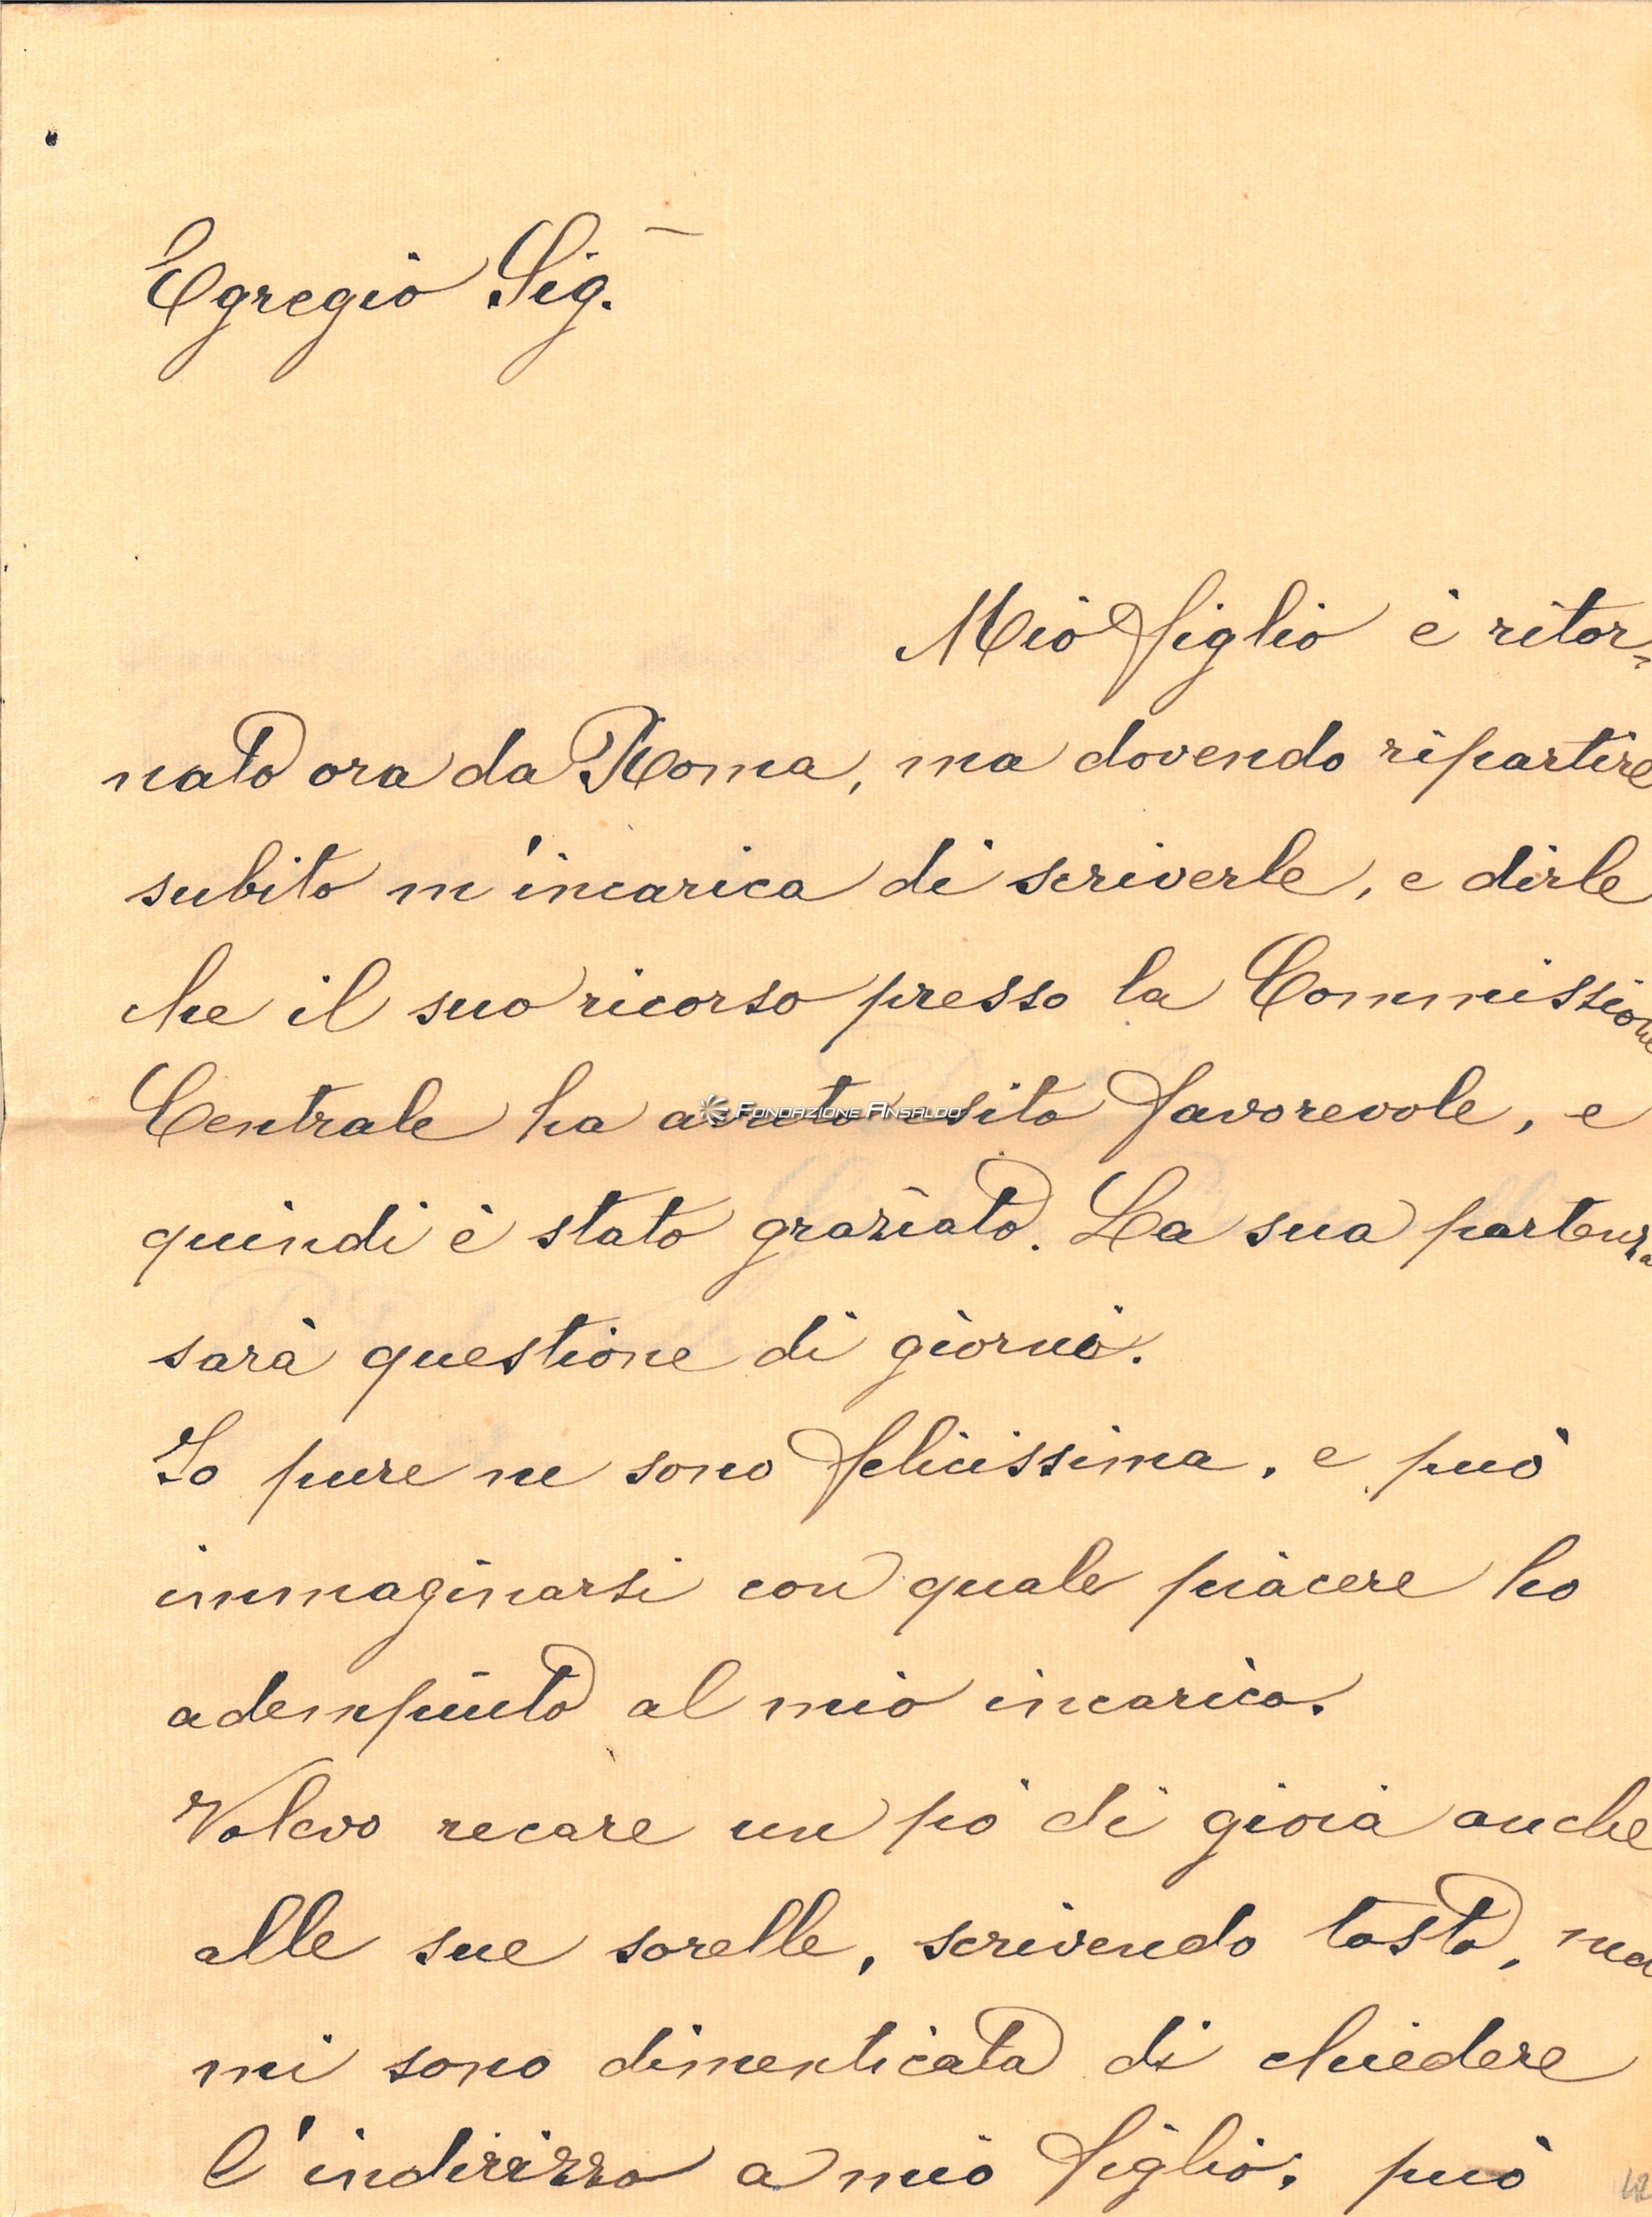 Egregio Sig.
Mio figlio è ritor=
nato ora da Roma, ma dovendo ripartire
subito m'incarica di scriverle, e dirle
che il suo ricorso presso la Commissione
Centrale ha avuto esito favorevole, e
FONDAZIONE ANSALDO
quindi è stato graziato. La sua partenza
sarà questione di giorni.
Io pure ne sono felicissima, e può
immaginarsi con quale piacere ho
adempiuto al mio incarico.
Volevo recare un pò di gioia anche
alle sue sorelle, scrivendo tosto, ma
mi sono dimenticata di chiedere
l'indirizzo a mio figlio; può